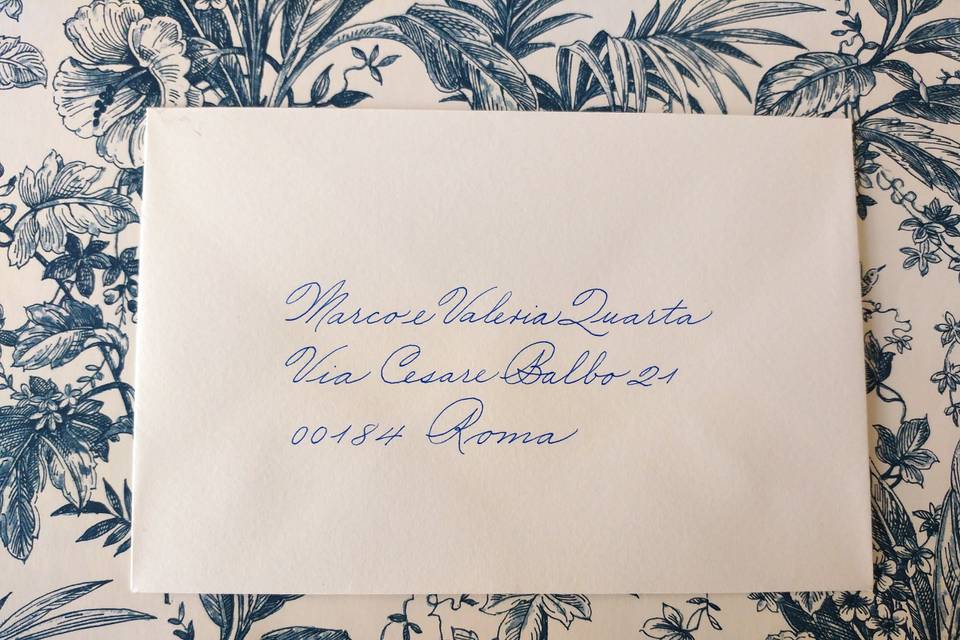 Marco e Valeria Quarta
Via Cesare Balbo 21
00184 Roma